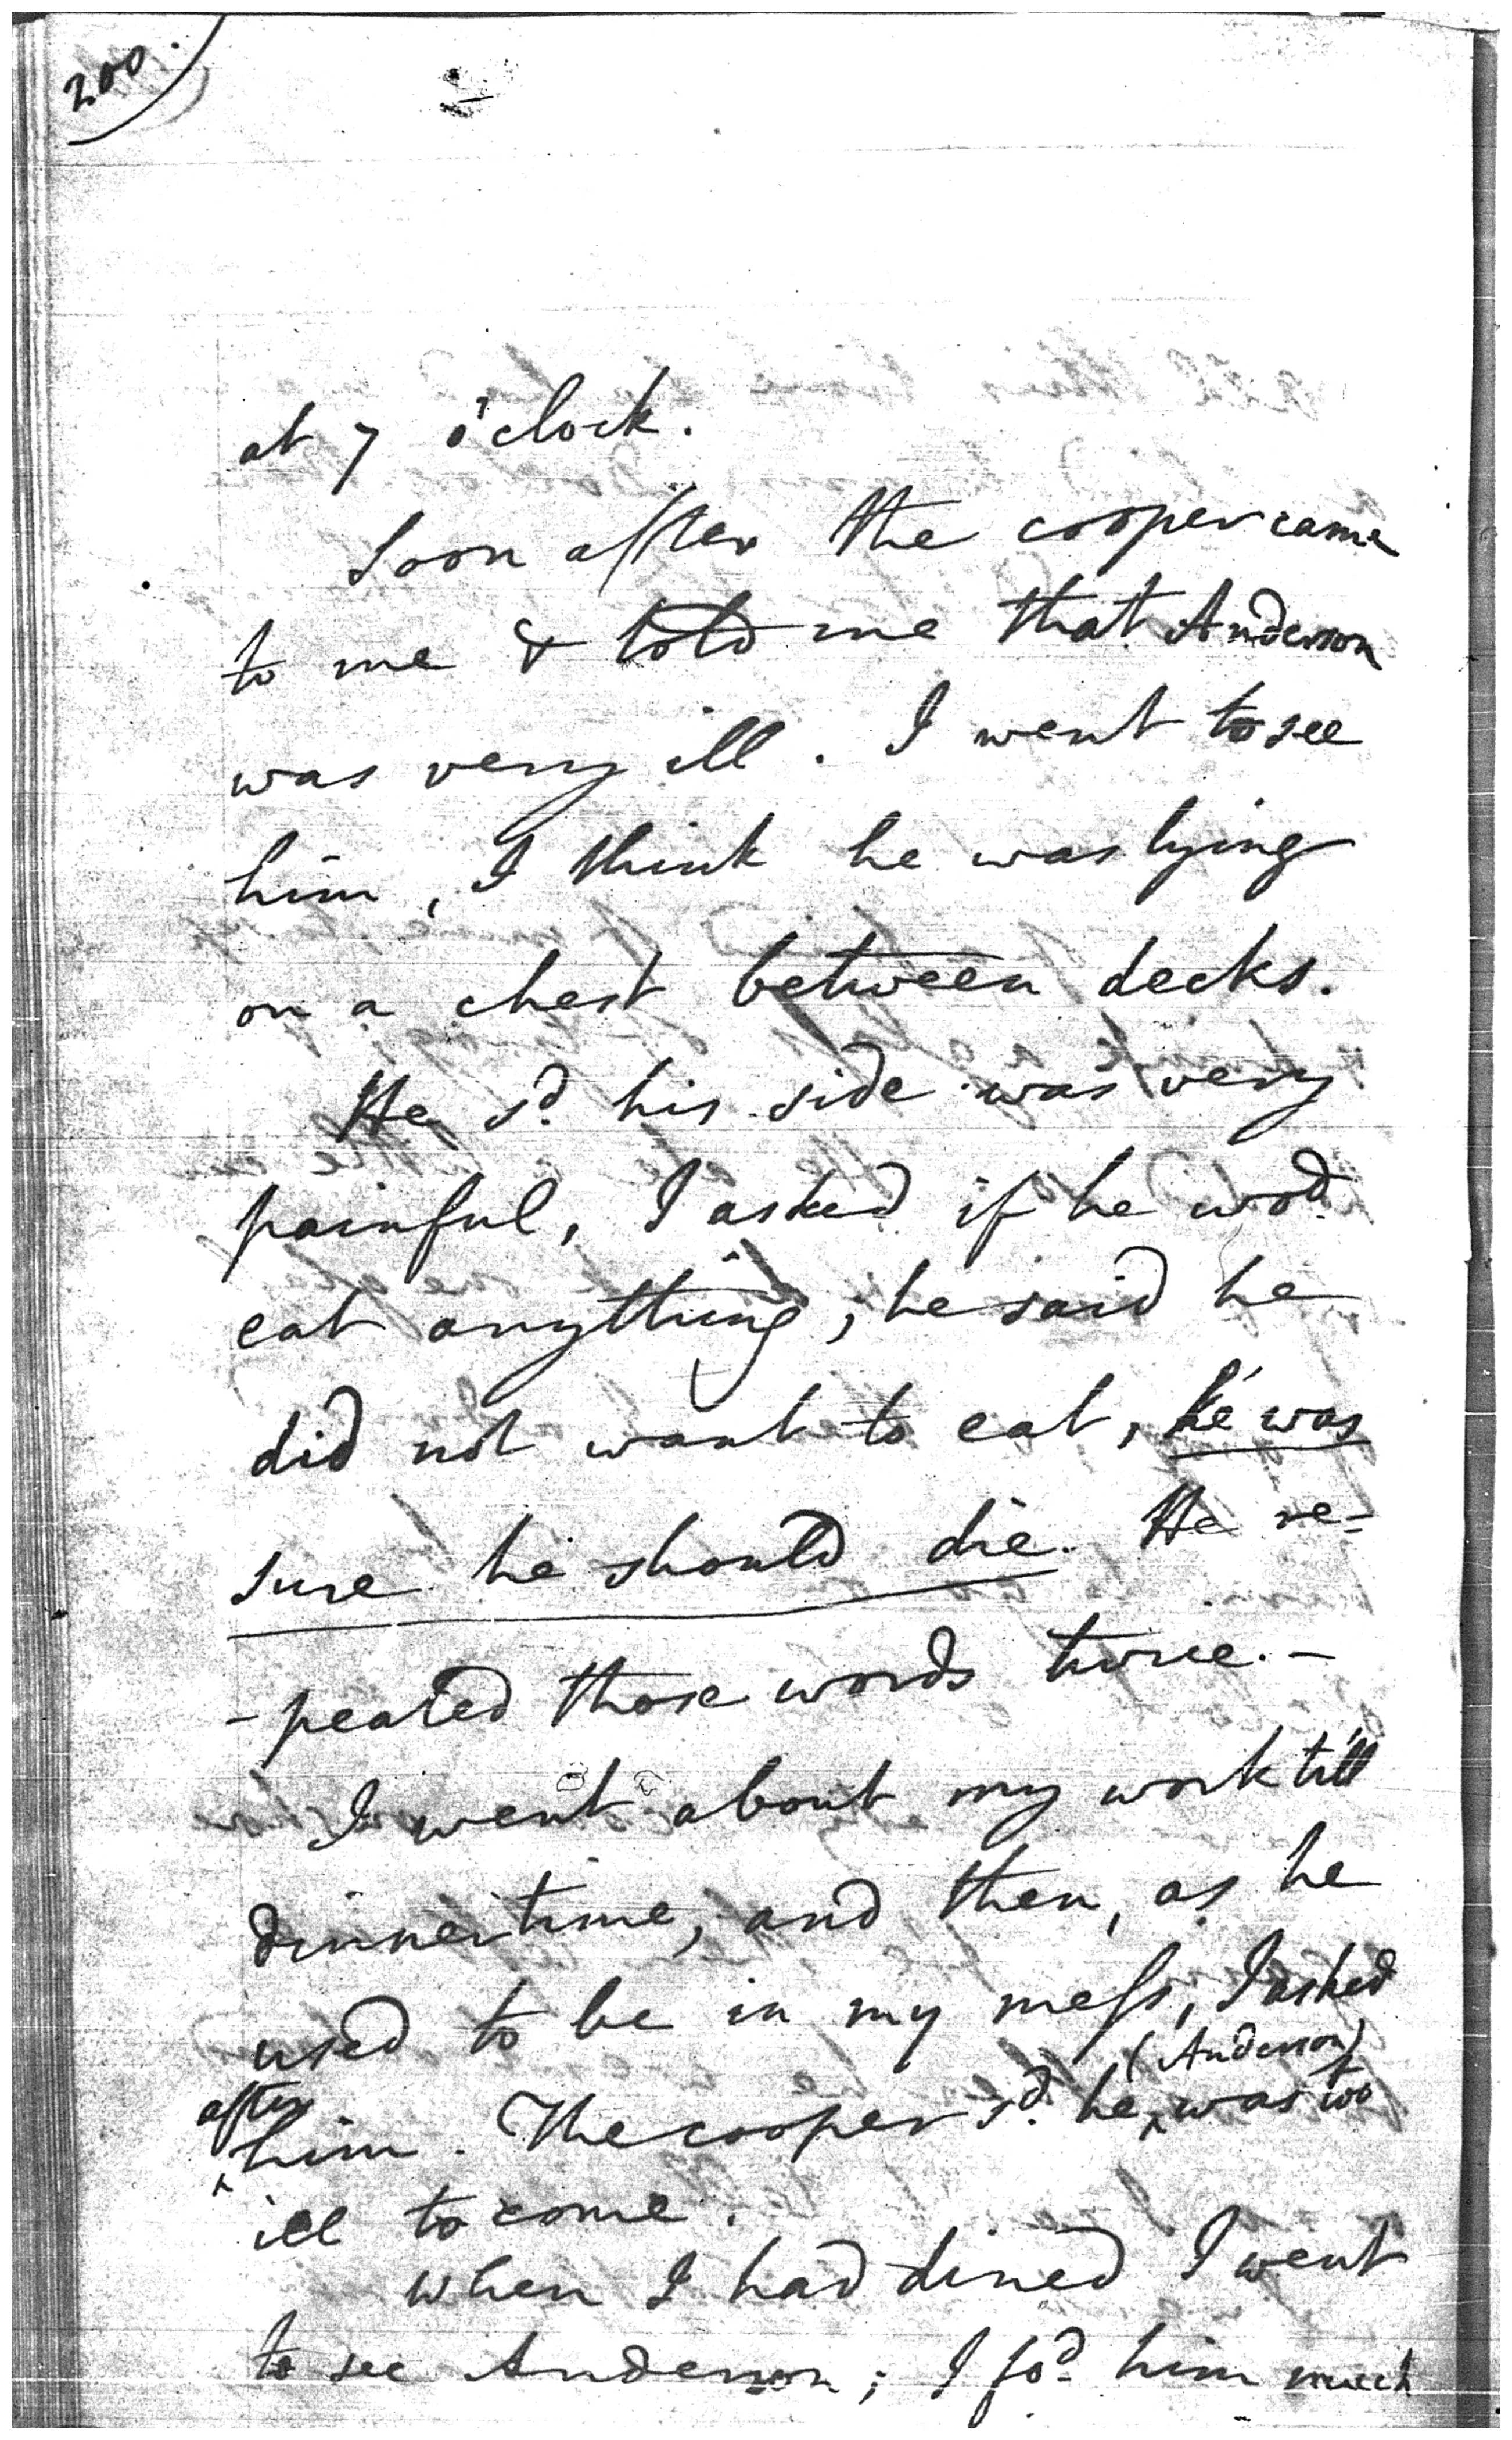 200.
at 7 o'clock.
Soon after the cooper came
to me & told me that Anderson
was very ill. I went to see
him, I think he was lying
on a chest between decks.
He sd. his side was very
painful, I asked if he wod.
eat anything; he said he
did not want to eat, he was
sure he should die. He re-
-peated those words twice.-
I went about my work till
dinner time, and then, as he
used to be in my mess, I asked
after him. The cooper sd. he (Anderson) was too
ill to come.
when I had dined I went
to see Anderson; I fod. him much